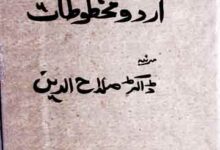 اردو مخطوطات
مرتبہ
ڈاکٹر صلاح الدین